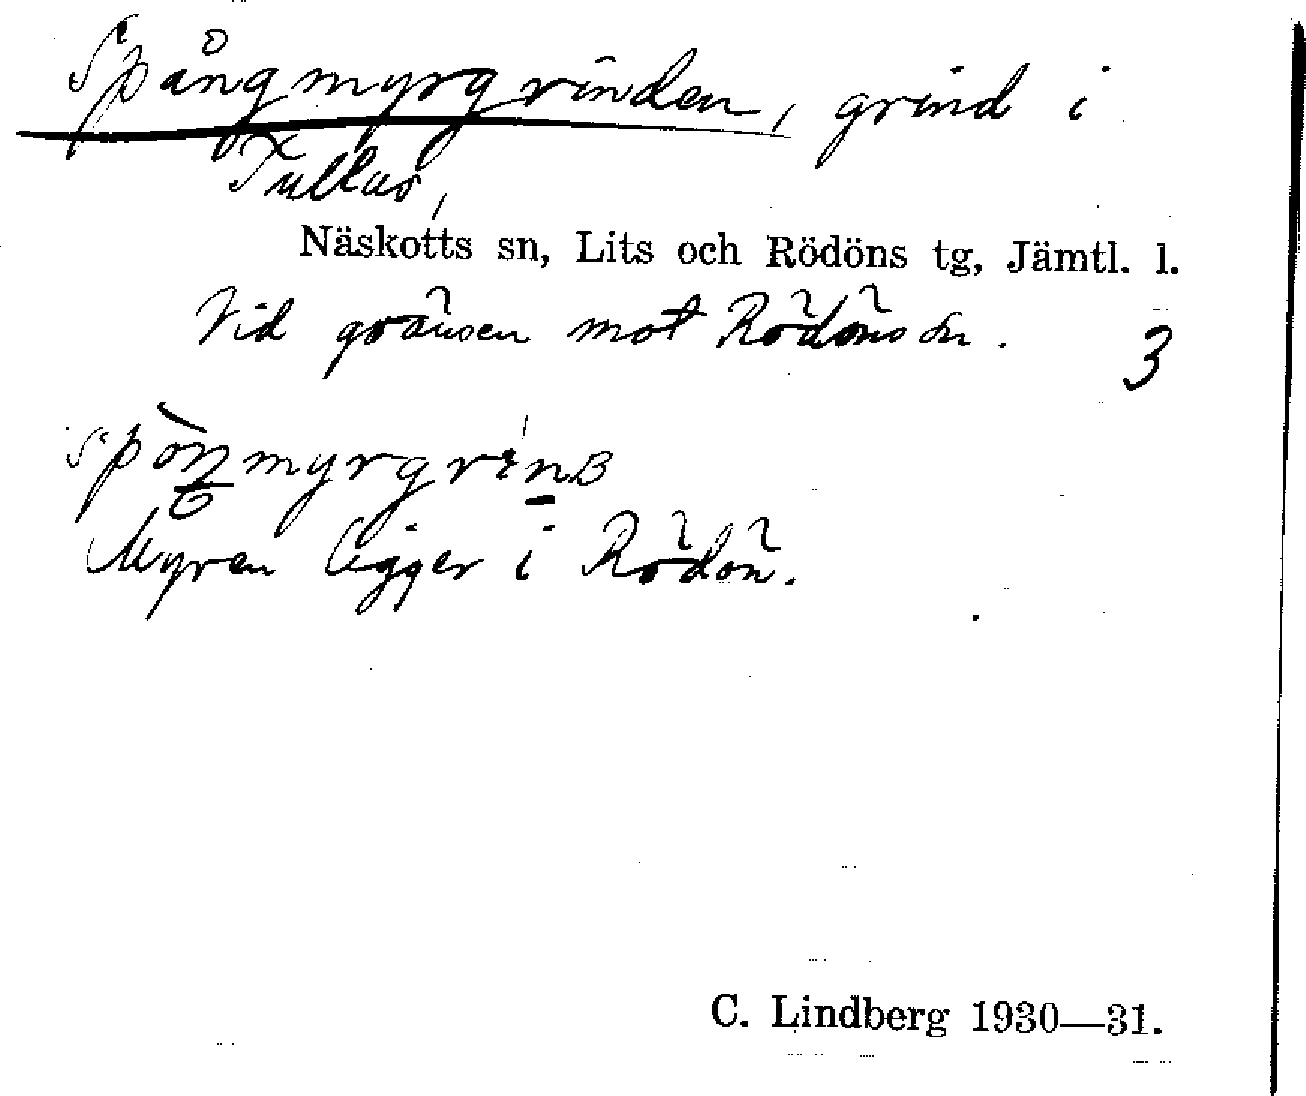 Spångmyrgrinden, grind i
Tullus,
Näskotts sn, Lits och Rödöns tg, Jämtl. l.
Vid gränsen mot Rödöns sn.
3
Myren ligger i Rödön.
C. Lindberg 1930—31.